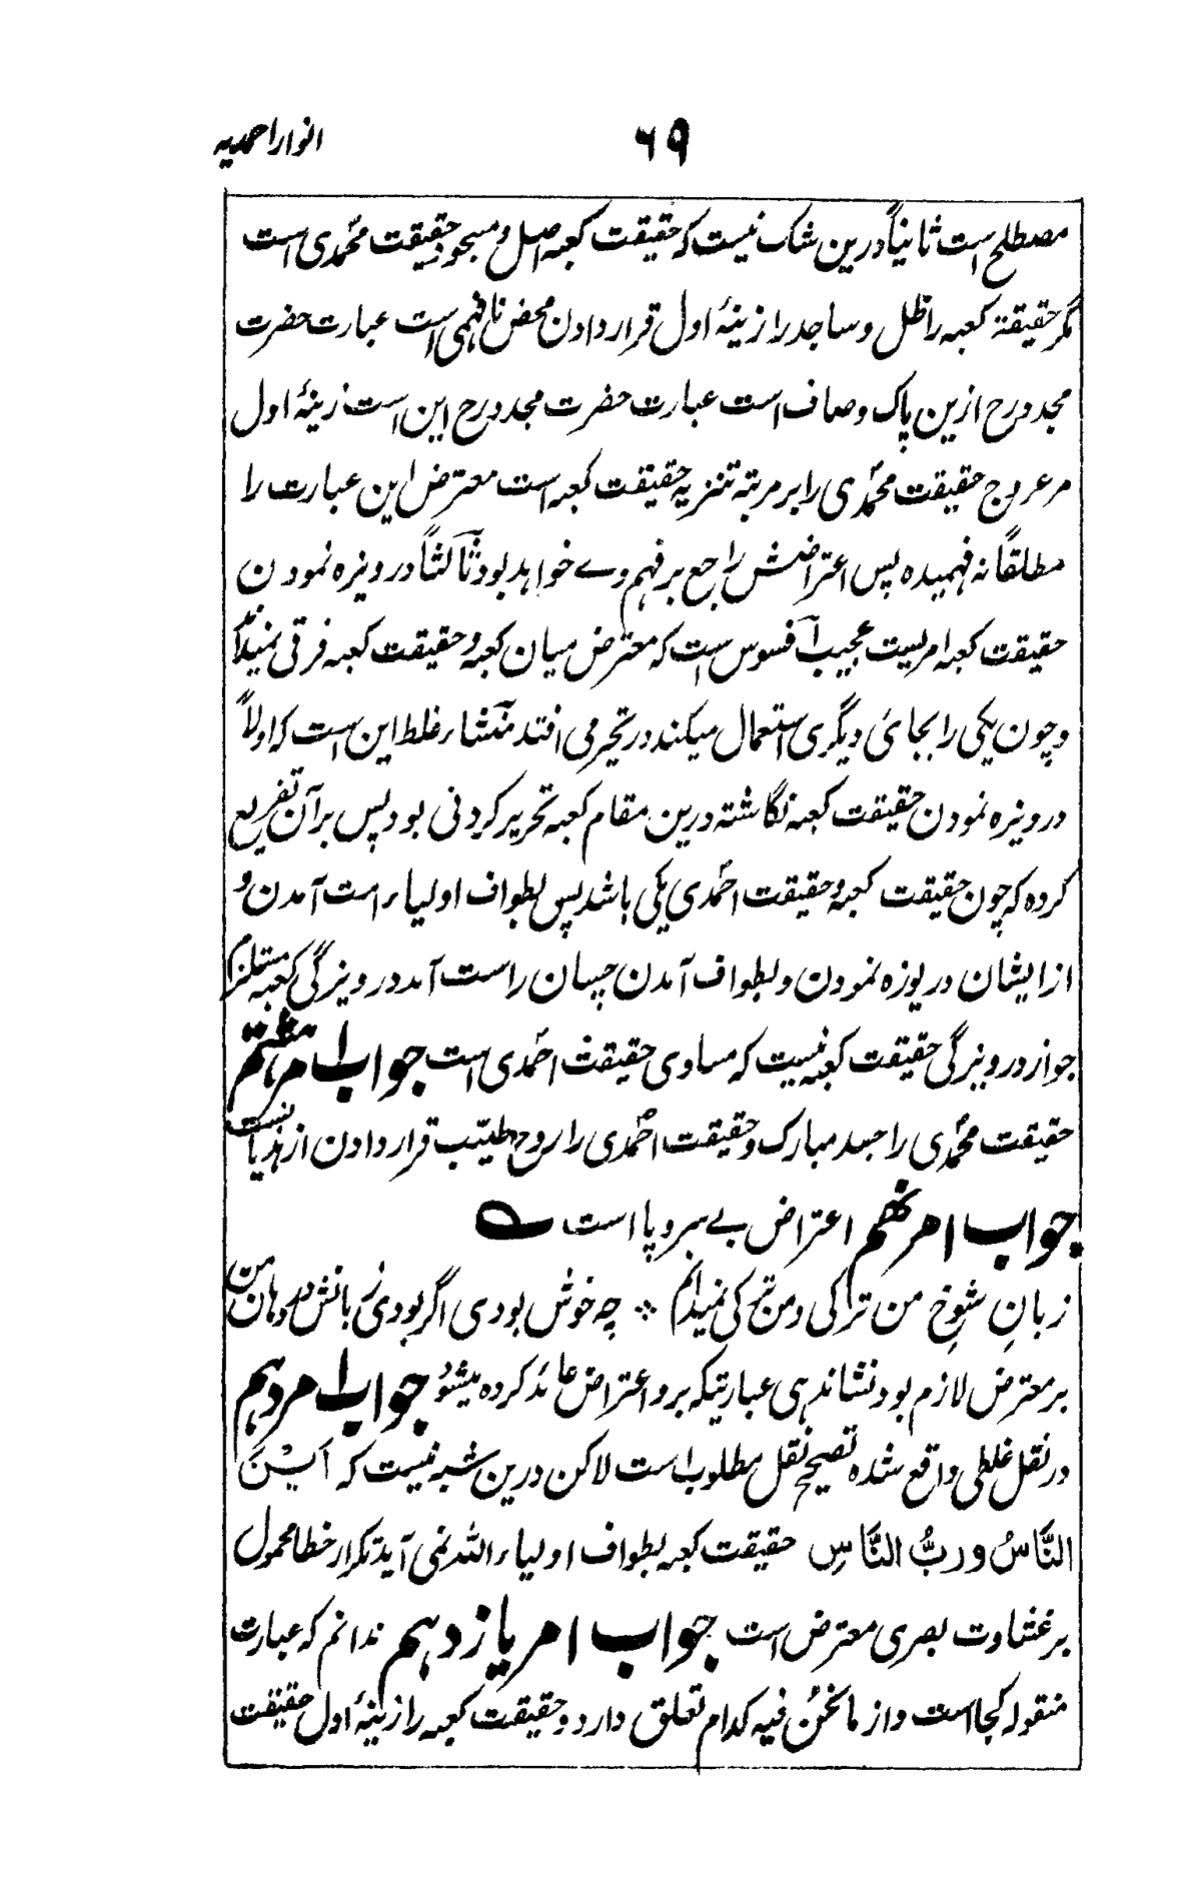 انوار احمدیه
۶۹
مصطلح است ثانیاً درین شک نیست که حقیقت کعبه اصل و مسجود حقیقت محمدی است
مگر حقیقة کعبه را ظل و ساجد را زینۂ اول قرار دادن محض نافهمی است عبارت حضرت
مجدد رح ازین پاک و صاف است عبارت حضرت مجدد رح این است زینۂ اول
مر عروج حقیقت محمدی را بر مرتبۂ تنزیه حقیقت کعبه است معترض این عبارت را
مطلقاً نه فهمیده پس اعتراضش راجع بر فهم وے خواهد بود ثالثاً درویزه نمودن
حقیقت کعبه امریست عجیب افسوس است که معترض میان کعبه و حقیقت کعبه فرقی نمیداند
و چون یکی را بجائ دیگری استعمال میکند در تحیر می افتد منشاء غلط این است که اولاً
درویزه نمودن حقیقت کعبه نگاشته درین مقام کعبه تحریر کردنی بود پس بر آن تفریع
کرده که چون حقیقت کعبه و حقیقت احمدی یکی باشد پس بطواف اولیاء است آمدن و
از ایشان دریوزه نمودن و بطواف آمدن چسان راست آمد درویزگی کعبه مستلزم
جواز درویزگی حقیقت کعبه نیست که مساوی حقیقت احمدی است جواب امر هشتم
حقیقت محمدی را جسد مبارک و حقیقت احمدی را روح طیّب قرار دادن از هذیانست
جواب امر نهم اعتراض بے سروپا است ؎
زبانِ شوخِ من ترکی و من ترکی نمیدانم ؞ چه خوش بودی اگر بودی زبانش در دهان من
بر معترض لازم بود نشاندهی عبارتیکه برو اعتراض عائد کرده میشود جواب امر دهم
در نقل غلطی واقع شده تصحیح نقل مطلوب است لاکن درین شبه نیست که اَیْنَ
النَّاسُ و ربُّ النَّاسِ حقیقت کعبه بطواف اولیاء الله نمی آید تکرار خطا محمول
بر غشاوت بصری معترض است جواب امر یازدهم ندانم که عبارت
منقوله کجا است و از ما نحن فیه کدام تعلق دارد و حقیقت کعبه را زینۂ اول حقیقت